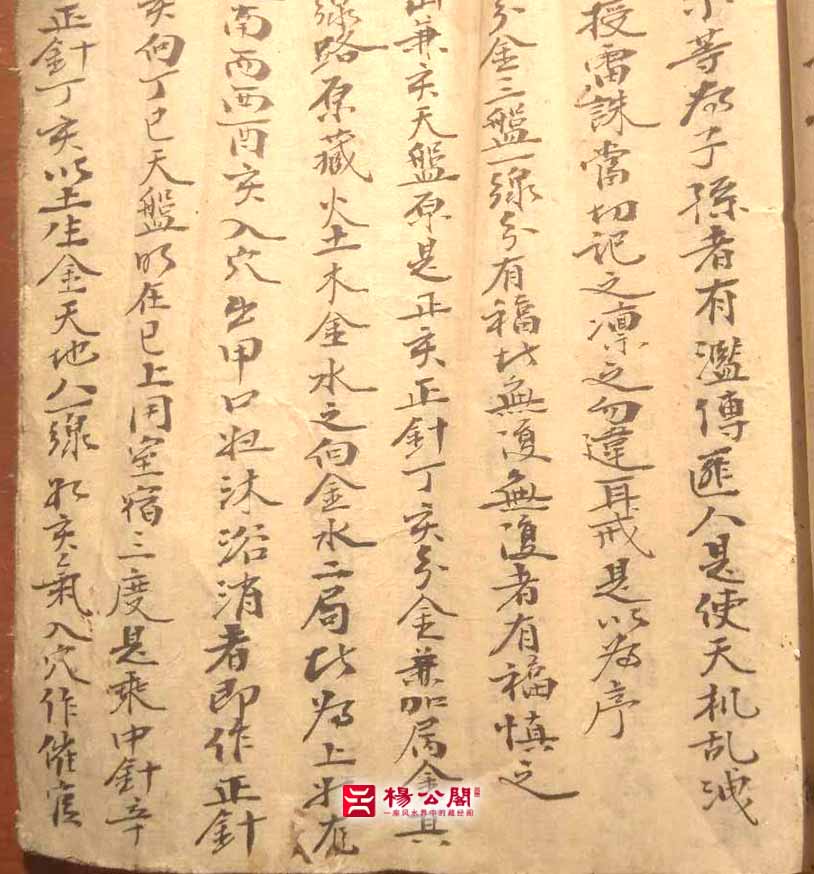 等為子孫者有濫傳匪人是使天机乱洩
授雷誅當切記之凛之勿違再戒是以為序
分金三盤一線分有福此無復無復者有福慎之
兼亥天盤原是正亥正針丁亥分金兼加属金其
線路原藏火土木金水之向金水二局此為上
南西酉亥入穴出甲口沐浴消者即作正針
亥向丁巳天盤在巳上用室宿三度是乘中針辛
正針丁亥以土生金天地人一線亥氣入穴作催官
楊公閣
一座风水界中的藏经阁